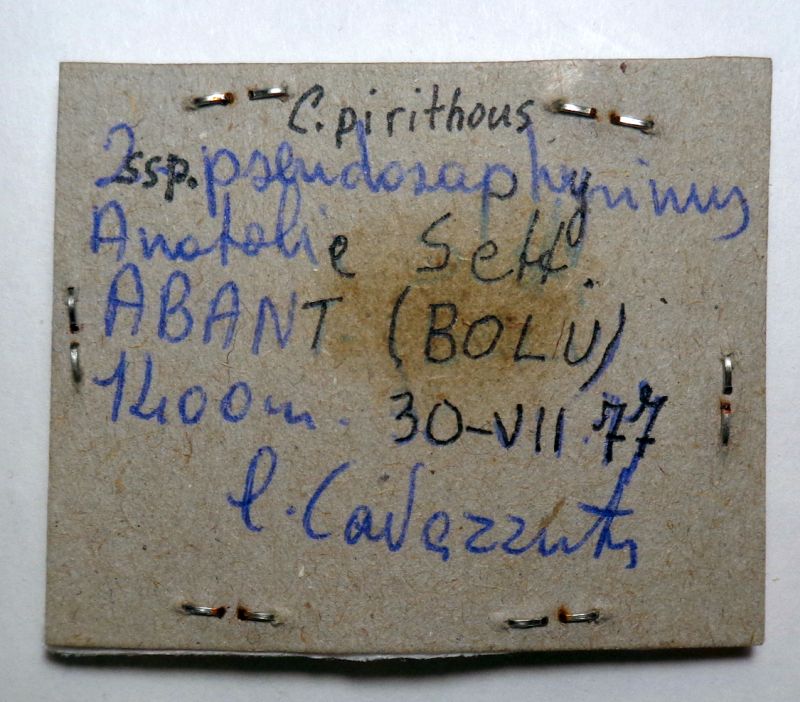 C. pirithous
2 ssp. pseudosaphyrinus
Anatolie Sett.
ABANT (BOLU)
1400m. 30-VII.77
P. Cavazzuti